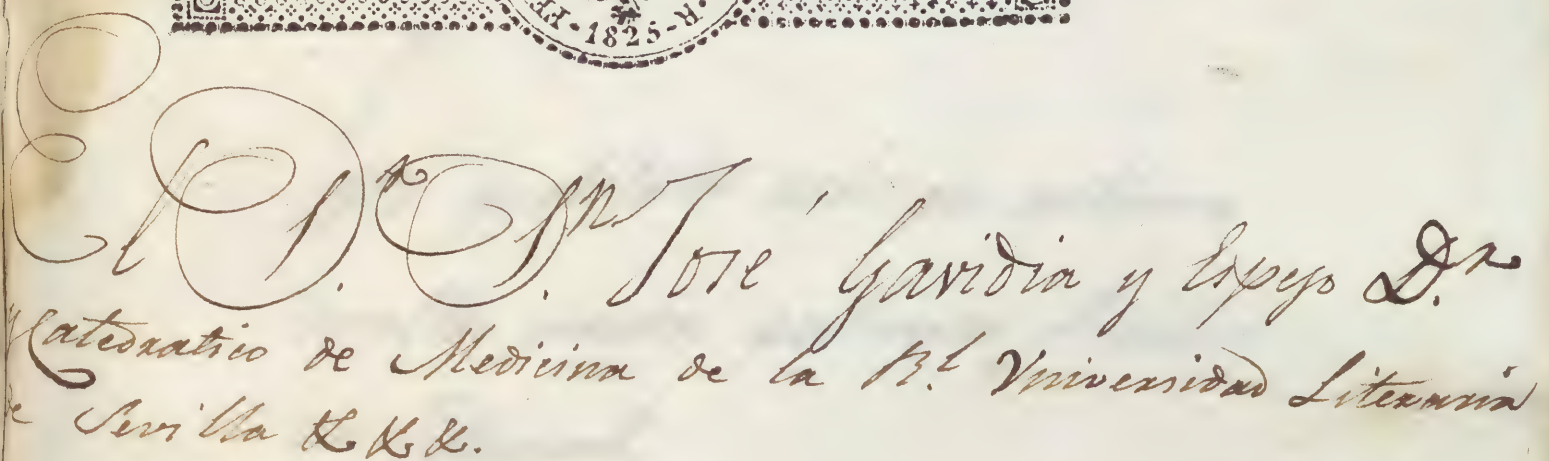 1825 - R.
El D.r D.n José Gavidia y Espejo D.r
y Catedratico de Medicina de la R.l Vniversidad Literaria
de Sevilla &. &. &.